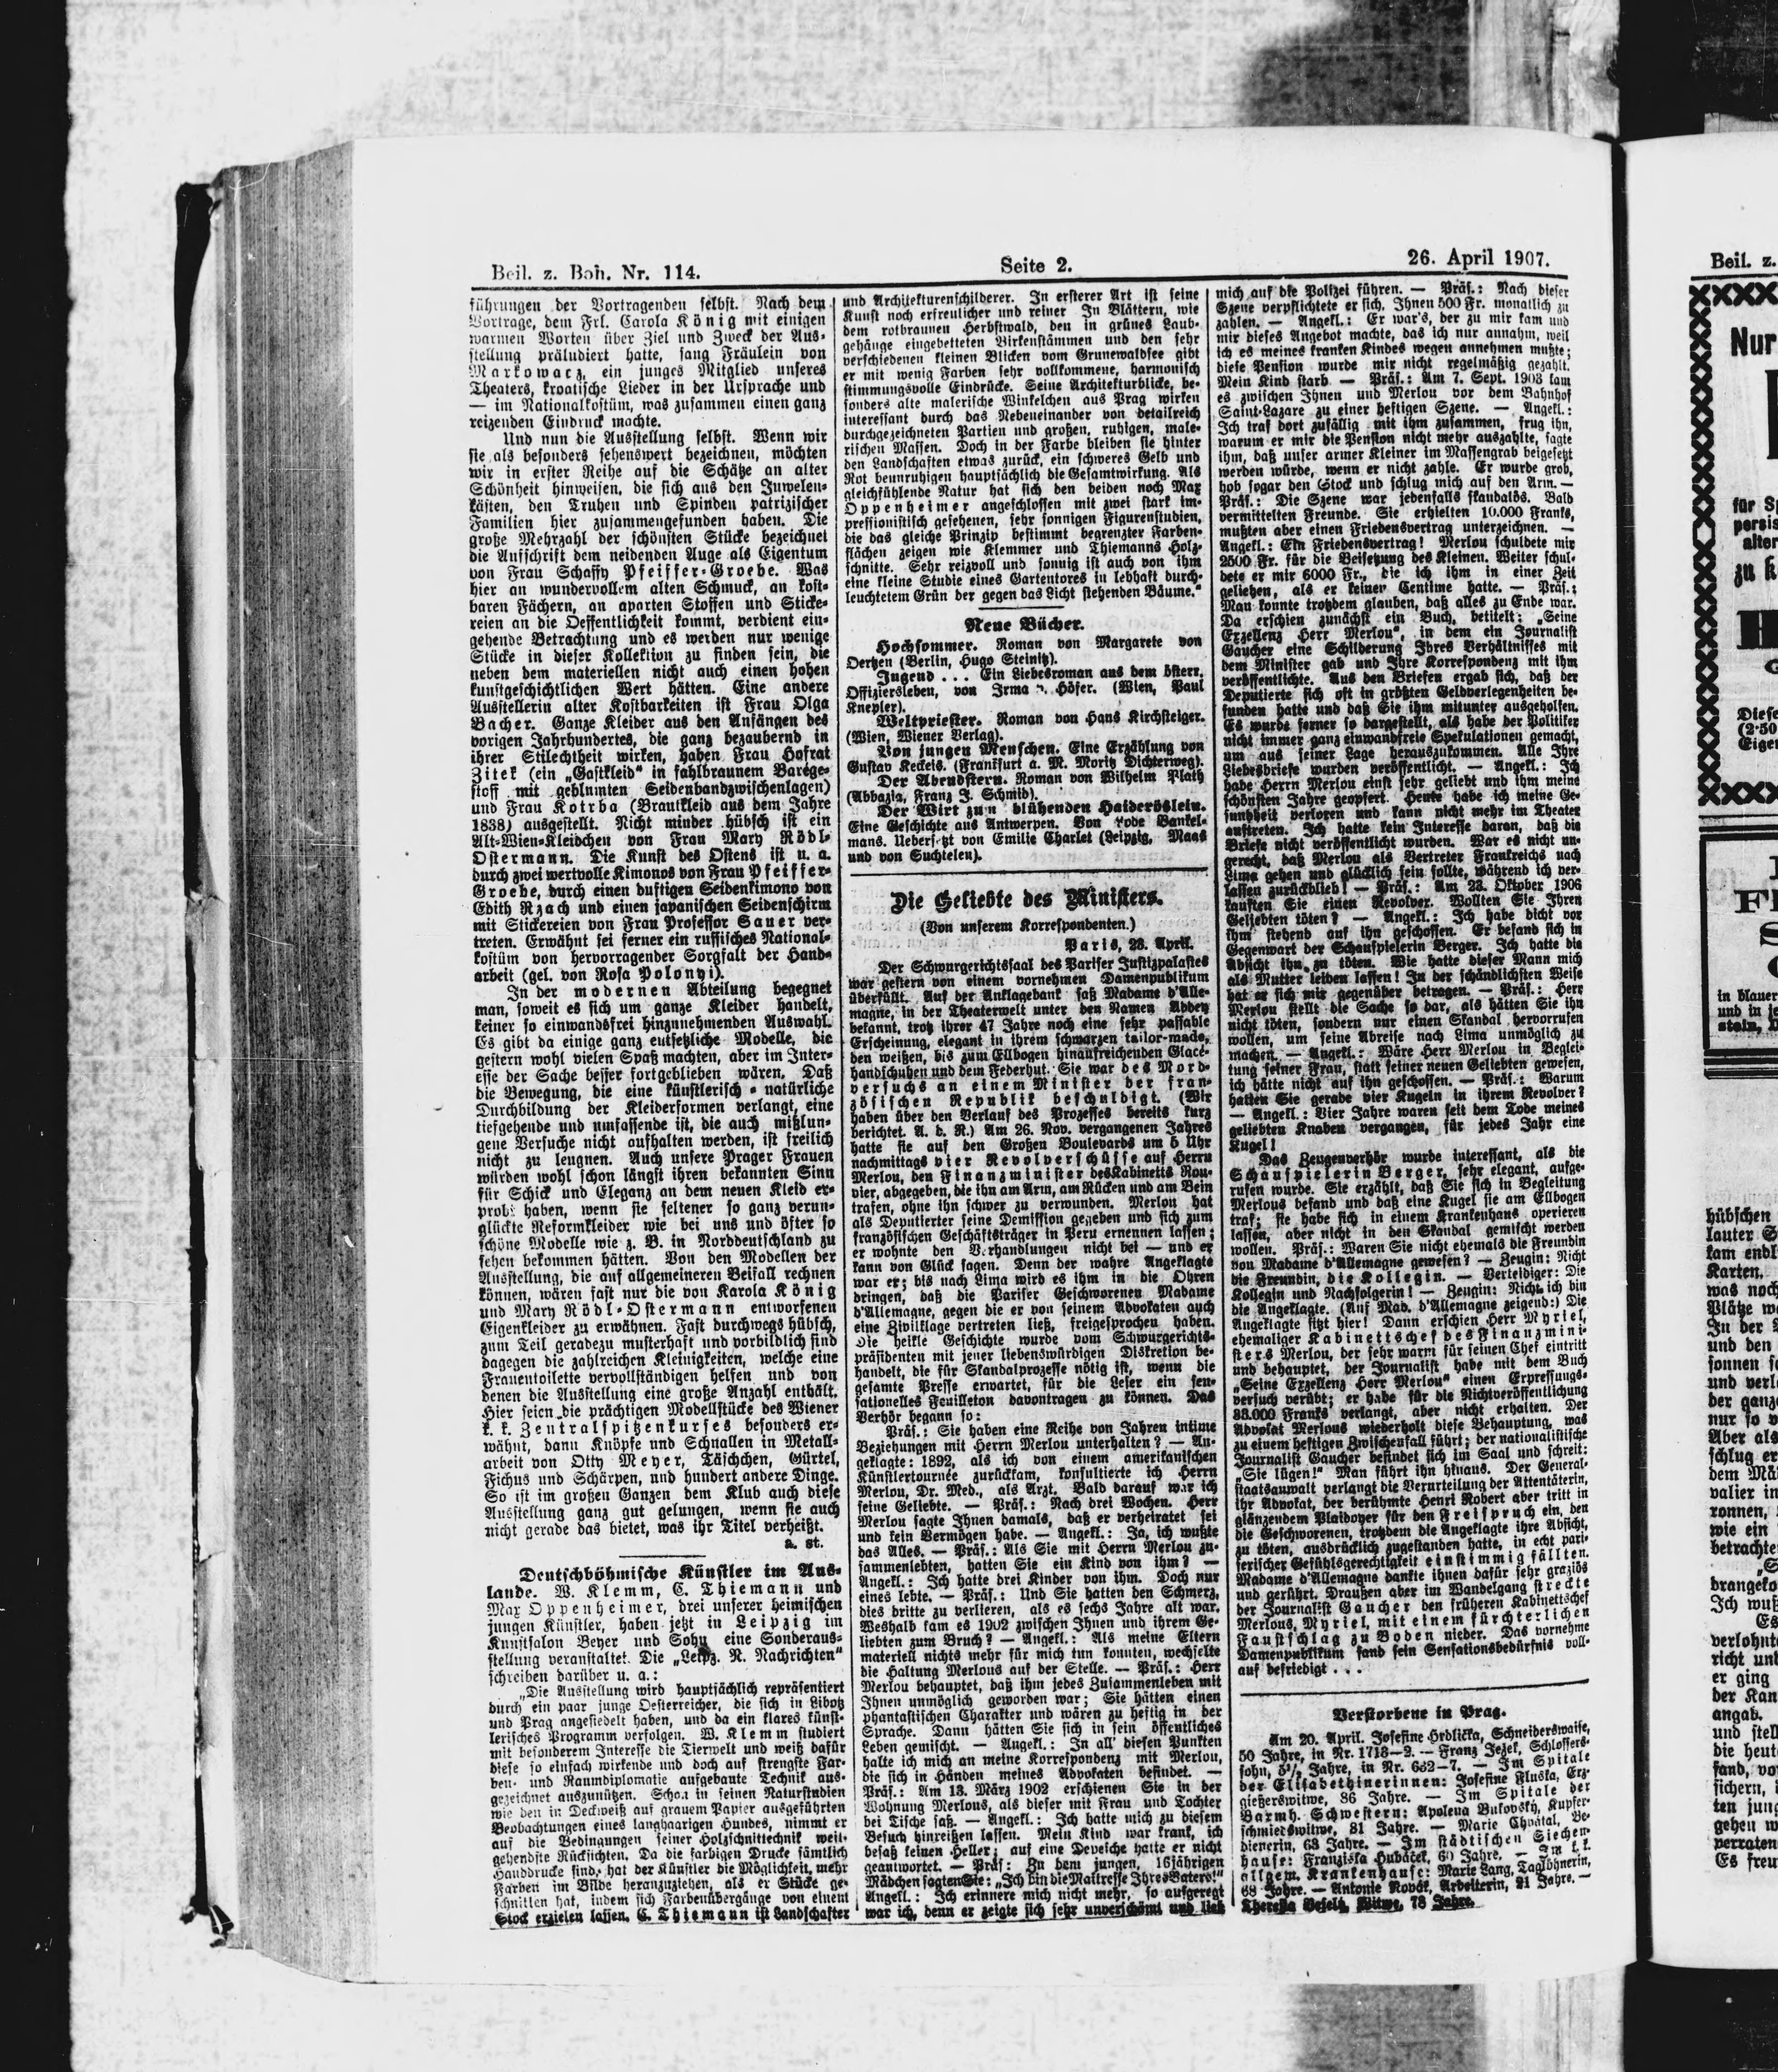 Beil. z. Boh. Nr. 114.
Seite 2.
26. April 1907.
führungen der Vortragenden selbst. Nach dem
Vortrage, dem Frl. Carola König mit einigen
warmen Worten über Ziel und Zweck der Aus-
stellung präludiert hatte, sang Fräulein von
Markowacz, ein junges Mitglied unseres
Theaters, kroatische Lieder in der Ursprache und
— im Nationalkostüm, was zusammen einen ganz
reizenden Eindruck machte.
Und nun die Ausstellung selbst. Wenn wir
sie als besonders sehenswert bezeichnen, möchten
wir in erster Reihe auf die Schätze an alter
Schönheit hinweisen, die sich aus den Juwelen-
kästen, den Truhen und Spinden patrizischer
Familien hier zusammengefunden haben. Die
große Mehrzahl der schönsten Stücke bezeichnet
die Aufschrift dem neidenden Auge als Eigentum
von Frau Schaffy Pfeiffer-Groebe. Was
hier an wundervollem alten Schmuck, an kost-
baren Fächern, an aparten Stoffen und Sticke-
reien an die Oeffentlichkeit kommt, verdient ein-
gehende Betrachtung und es werden nur wenige
Stücke in dieser Kollektion zu finden sein, die
neben dem materiellen nicht auch einen hohen
kunstgeschichtlichen Wert hätten. Eine andere
Ausstellerin alter Kostbarkeiten ist Frau Olga
Bacher. Ganze Kleider aus den Anfängen des
vorigen Jahrhundertes, die ganz bezaubernd in
ihrer Stilechtheit wirken, haben Frau Hofrat
Zitek (ein „Gastkleid“ in fahlbraunem Barège-
stoff mit geblumten Seidenbandzwischenlagen)
und Frau Kotrba (Brautkleid aus dem Jahre
1838) ausgestellt. Nicht minder hübsch ist ein
Alt-Wien-Kleidchen von Frau Mary Rödl-
Ostermann. Die Kunst des Ostens ist u. a.
durch zwei wertvolle Kimonos von Frau Pfeiffer-
Groebe, durch einen duftigen Seidenkimono von
Edith Rzach und einen japanischen Seidenschirm
mit Stickereien von Frau Professor Sauer ver-
treten. Erwähnt sei ferner ein russisches National-
kostüm von hervorragender Sorgfalt der Hand-
arbeit (gel. von Rosa Polonyi).
In der modernen Abteilung begegnet
man, soweit es sich um ganze Kleider handelt,
keiner so einwandsfrei hinzunehmenden Auswahl.
Es gibt da einige ganz entsetzliche Modelle, die
gestern wohl vielen Spaß machten, aber im Inter-
esse der Sache besser fortgeblieben wären. Daß
die Bewegung, die eine künstlerisch-natürliche
Durchbildung der Kleiderformen verlangt, eine
tiefgehende und umfassende ist, die auch mißlun-
gene Versuche nicht aufhalten werden, ist freilich
nicht zu leugnen. Auch unsere Prager Frauen
würden wohl schon längst ihren bekannten Sinn
für Schick und Eleganz an dem neuen Kleid er-
probt haben, wenn sie seltener so ganz verun-
glückte Reformkleider wie bei uns und öfter so
schöne Modelle wie z. B. in Norddeutschland zu
sehen bekommen hätten. Von den Modellen der
Ausstellung, die auf allgemeineren Beifall rechnen
können, wären fast nur die von Karola König
und Mary Rödl-Ostermann entworfenen
Eigenkleider zu erwähnen. Fast durchwegs hübsch,
zum Teil geradezu musterhaft und vorbildlich sind
dagegen die zahlreichen Kleinigkeiten, welche eine
Frauentoilette vervollständigen helfen und von
denen die Ausstellung eine große Anzahl enthält.
Hier seien die prächtigen Modellstücke des Wiener
k. k. Zentralspitzenkurses besonders er-
wähnt, dann Knöpfe und Schnallen in Metall-
arbeit von Otty Meyer, Täschchen, Gürtel,
Fichus und Schärpen, und hundert andere Dinge.
So ist im großen Ganzen dem Klub auch diese
Ausstellung ganz gut gelungen, wenn sie auch
nicht gerade das bietet, was ihr Titel verheißt.
a. st.
Deutschböhmische Künstler im Aus-
lande. W. Klemm, C. Thiemann und
Max Oppenheimer, drei unserer heimischen
jungen Künstler, haben jetzt in Leipzig im
Kunstsalon Beyer und Sohn eine Sonderaus-
stellung veranstaltet. Die „Leipz. N. Nachrichten“
schreiben darüber u. a.:
„Die Ausstellung wird hauptsächlich repräsentiert
durch ein paar junge Oesterreicher, die sich in Libotz
und Prag angesiedelt haben, und da ein klares künst-
lerisches Programm verfolgen. W. Klemm studiert
mit besonderem Interesse die Tierwelt und weiß dafür
diese so einfach wirkende und doch auf strengste Far-
ben- und Raumdiplomatie aufgebaute Technik aus-
gezeichnet auszunützen. Schon in seinen Naturstudien
wie den in Deckweiß auf grauem Papier ausgeführten
Beobachtungen eines langhaarigen Hundes, nimmt er
auf die Bedingungen seiner Holzschnittechnik weit-
gehendste Rücksichten. Da die farbigen Drucke sämtlich
Handdrucke sind, hat der Künstler die Möglichkeit, mehr
Farben im Bilde heranzuziehen, als er Stücke ge-
schnitten hat, indem sich Farbenübergänge von einem
Stock erzielen lassen. C. Thiemann ist Landschafter
und Architekturenschilderer. In ersterer Art ist seine
Kunst noch erfreulicher und reiner In Blättern, wie
dem rotbraunen Herbstwald, den in grünes Laub-
gehänge eingebetteten Birkenstämmen und den sehr
verschiedenen kleinen Blicken vom Grunewaldsee gibt
er mit wenig Farben sehr vollkommene, harmonisch
stimmungsvolle Eindrücke. Seine Architekturblicke, be-
sonders alte malerische Winkelchen aus Prag wirken
interessant durch das Nebeneinander von detailreich
durchgezeichneten Partien und großen, ruhigen, male-
rischen Massen. Doch in der Farbe bleiben sie hinter
den Landschaften etwas zurück, ein schweres Gelb und
Rot beunruhigen hauptsächlich die Gesamtwirkung. Als
gleichfühlende Natur hat sich den beiden noch Max
Oppenheimer angeschlossen mit zwei stark im-
pressionistisch gesehenen, sehr sonnigen Figurenstudien,
die das gleiche Prinzip bestimmt begrenzter Farben-
flächen zeigen wie Klemmer und Thiemanns Holz-
schnitte. Sehr reizvoll und sonnig ist auch von ihm
eine kleine Studie eines Gartentores in lebhaft durch-
leuchtetem Grün der gegen das Licht stehenden Bäume.“
Neue Bücher.
Hochsommer. Roman von Margarete von
Oertzen (Berlin, Hugo Steinitz).
Jugend . . . Ein Liebesroman aus dem österr.
Offiziersleben, von Irma v. Höfer. (Wien, Paul
Knepler).
Weltpriester. Roman von Hans Kirchsteiger.
(Wien, Wiener Verlag).
Von jungen Menschen. Eine Erzählung von
Gustav Keckeis. (Frankfurt a. M. Moritz Dichterweg).
Der Abendstern. Roman von Wilhelm Plath
(Abbazia, Franz J. Schmid).
Der Wirt zum blühenden Haideröslein.
Eine Geschichte aus Antwerpen. Von Lode Bankel-
mans. Uebersetzt von Emilie Charlet (Leipzig, Maas
und von Suchtelen).
Die Geliebte des Ministers.
(Von unserem Korrespondenten.)
Paris, 23. April.
Der Schwurgerichtssaal des Pariser Justizpalastes
war gestern von einem vornehmen Damenpublikum
überfüllt. Auf der Anklagebank saß Madame d'Alle-
magne, in der Theaterwelt unter den Namen Abbey
bekannt, trotz ihrer 47 Jahre noch eine sehr passable
Erscheinung, elegant in ihrem schwarzen tailor-made,
den weißen, bis zum Ellbogen hinaufreichenden Glacé-
handschuhen und dem Federhut. Sie war des Mord-
versuchs an einem Minister der fran-
zösischen Republik beschuldigt. (Wir
haben über den Verlauf des Prozesses bereits kurz
berichtet. A. d. R.) Am 26. Nov. vergangenen Jahres
hatte sie auf den Großen Boulevards um 5 Uhr
nachmittags vier Revolverschüsse auf Herrn
Merlou, den Finanzminister des Kabinetts Rou-
vier, abgegeben, die ihn am Arm, am Rücken und am Bein
trafen, ohne ihn schwer zu verwunden. Merlou hat
als Deputierter seine Demission gegeben und sich zum
französischen Geschäftsträger in Peru ernennen lassen;
er wohnte den Verhandlungen nicht bei — und er
kann von Glück sagen. Denn der wahre Angeklagte
war er; bis nach Lima wird es ihm in die Ohren
dringen, daß die Pariser Geschworenen Madame
d'Allemagne, gegen die er von seinem Advokaten auch
eine Zivilklage vertreten ließ, freigesprochen haben.
Die heikle Geschichte wurde vom Schwurgerichts-
präsidenten mit jener liebenswürdigen Diskretion be-
handelt, die für Skandalprozesse nötig ist, wenn die
gesamte Presse erwartet, für die Leser ein sen-
sationelles Feuilleton davontragen zu können. Das
Verhör begann so:
Präs.: Sie haben eine Reihe von Jahren intime
Beziehungen mit Herrn Merlou unterhalten? — An-
geklagte: 1892, als ich von einem amerikanischen
Künstlertournée zurückkam, konsultierte ich Herrn
Merlou, Dr. Med., als Arzt. Bald darauf war ich
seine Geliebte. — Präs.: Nach drei Wochen. Herr
Merlou sagte Ihnen damals, daß er verheiratet sei
und kein Vermögen habe. — Angekl.: Ja, ich wußte
das Alles. — Präs.: Als Sie mit Herrn Merlou zu-
sammenlebten, hatten Sie ein Kind von ihm? —
Angekl.: Ich hatte drei Kinder von ihm. Doch nur
eines lebte. — Präs.: Und Sie hatten den Schmerz,
dies dritte zu verlieren, als es sechs Jahre alt war.
Weshalb kam es 1902 zwischen Ihnen und ihrem Ge-
liebten zum Bruch? — Angekl.: Als meine Eltern
materiell nichts mehr für mich tun konnten, wechselte
die Haltung Merlous auf der Stelle. — Präs.: Herr
Merlou behauptet, daß ihm jedes Zusammenleben mit
Ihnen unmöglich geworden war; Sie hätten einen
phantastischen Charakter und wären zu heftig in der
Sprache. Dann hätten Sie sich in sein öffentliches
Leben gemischt. — Angekl.: In all' diesen Punkten
halte ich mich an meine Korrespondenz mit Merlou,
die sich in Händen meines Advokaten befindet. —
Präs.: Am 13. März 1902 erschienen Sie in der
Wohnung Merlous, als dieser mit Frau und Tochter
bei Tische saß. — Angekl.: Ich hatte mich zu diesem
Besuch hinreißen lassen. Mein Kind war krank, ich
besaß keinen Heller; auf eine Depesche hatte er nicht
geantwortet. — Präs: Zu dem jungen, 16jährigen
Mädchen sagten Sie: „Ich bin die Maitresse Ihres Vaters!“
Angekl.: Ich erinnere mich nicht mehr, so aufgeregt
war ich, denn er zeigte sich sehr unverschämt und ließ
mich auf die Polizei führen. — Präs.: Nach dieser
Szene verpflichtete er sich, Ihnen 500 Fr. monatlich zu
zahlen. — Angekl.: Er war's, der zu mir kam und
mir dieses Angebot machte, das ich nur annahm, weil
ich es meines kranken Kindes wegen annehmen mußte;
diese Pension wurde mir nicht regelmäßig gezahlt.
Mein Kind starb — Präs.: Am 7. Sept. 1903 kam
es zwischen Ihnen und Merlou vor dem Bahnhof
Saint-Lazare zu einer heftigen Szene. — Angekl.:
Ich traf dort zufällig mit ihm zusammen, frug ihn,
warum er mir die Pension nicht mehr auszahlte, sagte
ihm, daß unser armer Kleiner im Massengrab beigesetzt
werden würde, wenn er nicht zahle. Er wurde grob,
hob sogar den Stock und schlug mich auf den Arm. —
Präs.: Die Szene war jedenfalls skandalös. Bald
vermittelten Freunde. Sie erhielten 10.000 Franks,
mußten aber einen Friedensvertrag unterzeichnen. —
Angekl.: Ein Friedensvertrag! Merlou schuldete mir
2500 Fr. für die Beisetzung des Kleinen. Weiter schul-
dete er mir 6000 Fr., die ich ihm in einer Zeit
geliehen, als er keinen Centime hatte. — Präs.:
Man konnte trotzdem glauben, daß alles zu Ende war.
Da erschien zunächst ein Buch, betitelt: „Seine
Exzellenz Herr Merlou“, in dem ein Journalist
Gaucher eine Schilderung Ihres Verhältnisses mit
dem Minister gab und Ihre Korrespondenz mit ihm
veröffentlichte. Aus den Briefen ergab sich, daß der
Deputierte sich oft in größten Geldverlegenheiten be-
funden hatte und daß Sie ihm mitunter ausgeholfen.
Es wurde ferner so dargestellt, als habe der Politiker
nicht immer ganz einwandfreie Spekulationen gemacht,
um aus seiner Lage herauszukommen. Alle Ihre
Liebesbriefe wurden veröffentlicht. — Angekl.: Ich
habe Herrn Merlou einst sehr geliebt und ihm meine
schönsten Jahre geopfert. Heute habe ich meine Ge-
sundheit verloren und kann nicht mehr im Theater
auftreten. Ich hatte kein Interesse daran, daß die
Briefe nicht veröffentlicht wurden. War es nicht un-
gerecht, daß Merlou als Vertreter Frankreichs nach
Lima gehen und glücklich sein sollte, während ich ver-
lassen zurückblieb! — Präs.: Am 23. Oktober 1906
kauften Sie einen Revolver. Wollten Sie Ihren
Geliebten töten? — Angekl.: Ich habe dicht vor
ihm stehend auf ihn geschossen. Er befand sich in
Gegenwart der Schauspielerin Berger. Ich hatte die
Absicht ihn zu töten. Wie hatte dieser Mann mich
als Mutter leiden lassen! In der schändlichsten Weise
hat er sich mir gegenüber betragen. — Präs.: Herr
Merlou stellt die Sache so dar, als hätten Sie ihn
nicht töten, sondern nur einen Skandal hervorrufen
wollen, um seine Abreise nach Lima unmöglich zu
machen. — Angekl.: Wäre Herr Merlou in Beglei-
tung seiner Frau, statt seiner neuen Geliebten gewesen,
ich hätte nicht auf ihn geschossen. — Präs.: Warum
hatten Sie gerade vier Kugeln in ihrem Revolver?
— Angekl.: Vier Jahre waren seit dem Tode meines
geliebten Knaben vergangen, für jedes Jahr eine
Kugel!
Das Zeugenverhör wurde interessant, als die
Schauspielerin Berger, sehr elegant, aufge-
rufen wurde. Sie erzählt, daß Sie sich in Begleitung
Merlous befand und daß eine Kugel sie am Ellbogen
traf; sie habe sich in einem Krankenhaus operieren
lassen, aber nicht in den Skandal gemischt werden
wollen. Präs.: Waren Sie nicht ehemals die Freundin
von Madame d'Allemagne gewesen? — Zeugin: Nicht
die Freundin, die Kollegin. — Verteidiger: Die
Kollegin und Nachfolgerin! — Zeugin: Nicht ich bin
die Angeklagte. (Auf Mad. d'Allemagne zeigend:) Die
Angeklagte sitzt hier! Dann erschien Herr Myriel,
ehemaliger Kabinettschef des Finanzmini-
sters Merlou, der sehr warm für seinen Chef eintritt
und behauptet, der Journalist habe mit dem Buch
„Seine Exzellenz Herr Merlou“ einen Erpressungs-
versuch verübt; er habe für die Nichtveröffentlichung
35.000 Franks verlangt, aber nicht erhalten. Der
Advokat Merlous wiederholt diese Behauptung, was
zu einem heftigen Zwischenfall führt; der nationalistische
Journalist Gaucher befindet sich im Saal und schreit:
„Sie lügen!“ Man führt ihn hinaus. Der General-
staatsanwalt verlangt die Verurteilung der Attentäterin,
ihr Advokat, der berühmte Henri Robert aber tritt in
glänzendem Plaidoyer für den Freispruch ein, den
die Geschworenen, trotzdem die Angeklagte ihre Absicht,
zu töten, ausdrücklich zugestanden hatte, in echt pari-
serischer Gefühlsgerechtigkeit einstimmig fällten.
Madame d'Allemagne dankte ihnen dafür sehr graziös
und gerührt. Draußen aber im Wandelgang streckte
der Journalist Gaucher den früheren Kabinettschef
Merlous, Myriel, mit einem fürchterlichen
Faustschlag zu Boden nieder. Das vornehme
Damenpublikum fand sein Sensationsbedürfnis voll-
auf befriedigt . . .
Verstorbene in Prag.
Am 20. April. Josefine Hrdlicka, Schneiderswaise,
50 Jahre, in Nr. 1713—2. — Franz Jezek, Schlossers-
sohn, 5½ Jahre, in Nr. 632—7. — Im Spitale
der Elisabethinerinnen: Josefine Fluska, Erz-
gießerswitwe, 86 Jahre. — Im Spitale der
Barmh. Schwestern: Apolena Bukovsky, Kupfer-
schmiedswitwe, 81 Jahre. — Marie Chvatal, Be-
dienerin, 63 Jahre. — Im städtischen Siechen-
hause: Franziska Hubáček, 60 Jahre. — Im k. k.
allgem. Krankenhause: Marie Lang, Taglöhnerin,
68 Jahre. — Antonie Novák, Arbeiterin, 21 Jahre. —
Theresia Veselý, Witwe, 73 Jahre.
Beil. z.
Nur
für
persis
alter
zu
Diese
(2·50
Eiger
in blauer
und in je
stein,
hübschen
lauter
kam endl
Karten.
was noch
Plätze
In der
und den
sonnen
und verl
der ganz
nur so
Aber als
schlug er
dem
valier in
ronnen,
wie ein
betrachte
drangeko
Ich wuß
Es
verlohnt
richt und
er ging
der Kan
angab.
und stell
die heut
fand, vo
sichern,
ten jung
gehen
verraten
Es freu